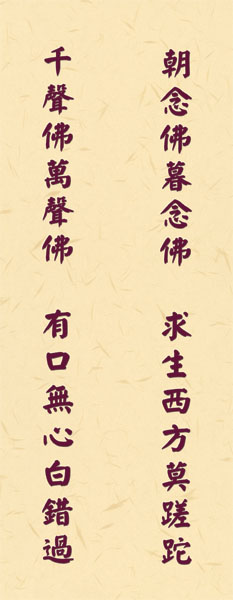 朝念佛暮念佛　求生西方莫蹉跎
千聲佛萬聲佛　有口無心白錯過